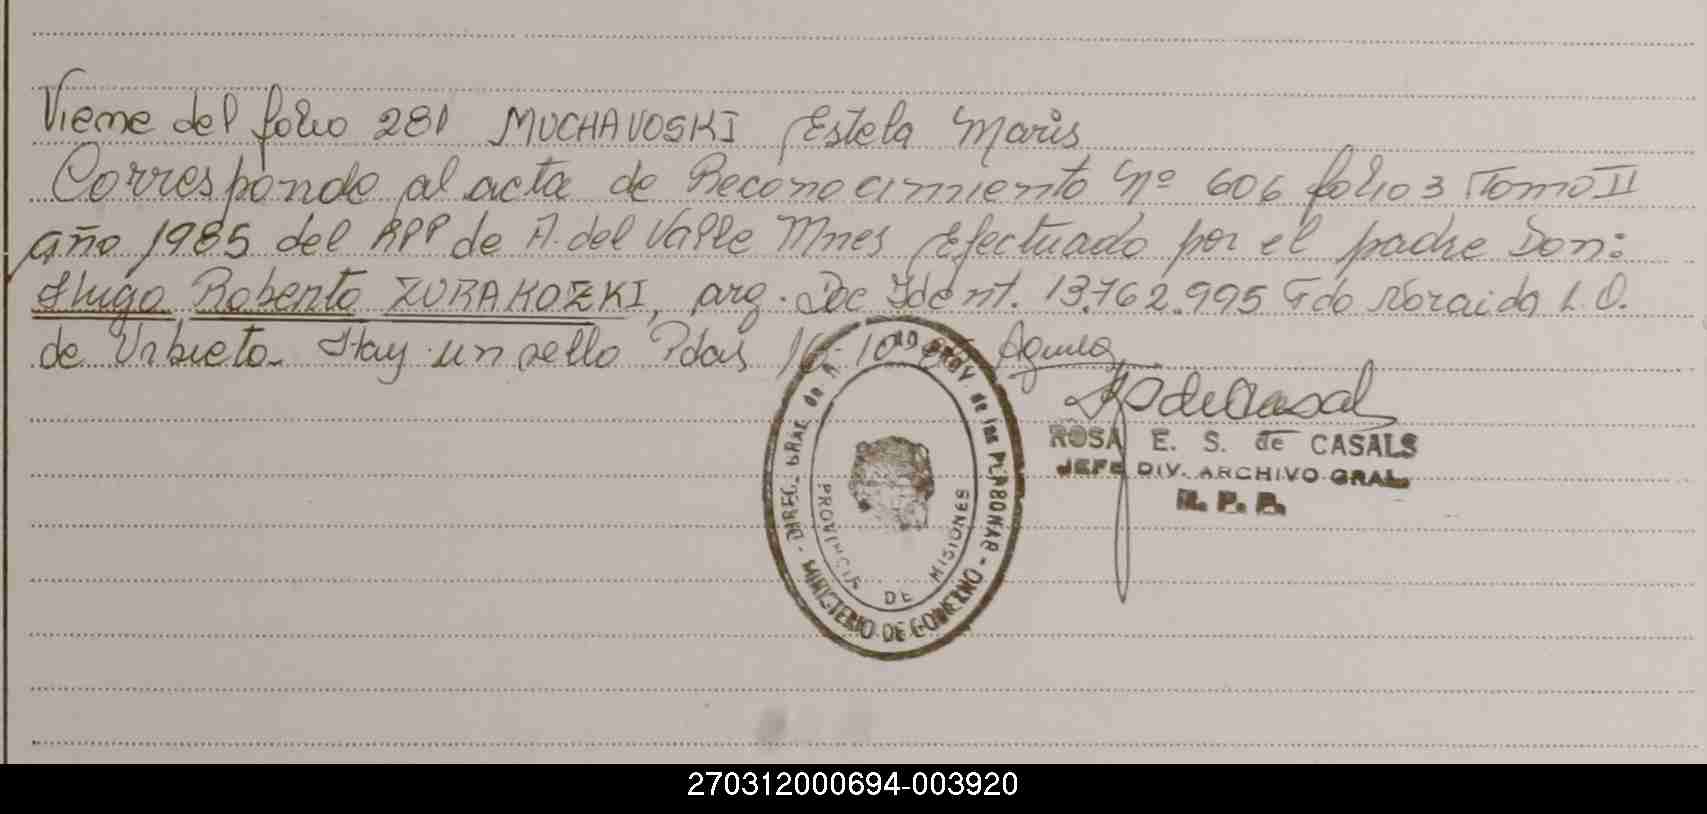 Viene del folio 281 MUCHAVOSKI Estela Maris
Corresponde al acta de Reconocimiento Nº 606 folio 3 Tomo II
año 1985 del RPP de A. del Valle Mnes Efectuado por el padre Don:
Hugo Roberto ZURAKOZKI, arg. Doc Ident. 13.762.995 Fdo Noraida L. O.
de Urbieta. Hay un sello Pdas 16-10 Aguirre
ROSA E. S. de CASALS
JEFE DIV. ARCHIVO GRAL.
R. P. P.
DIREC. GRAL. de las PERSONAS - MINISTERIO DE GOBIERNO -
PROVINCIA DE MISIONES
270312000694-003920